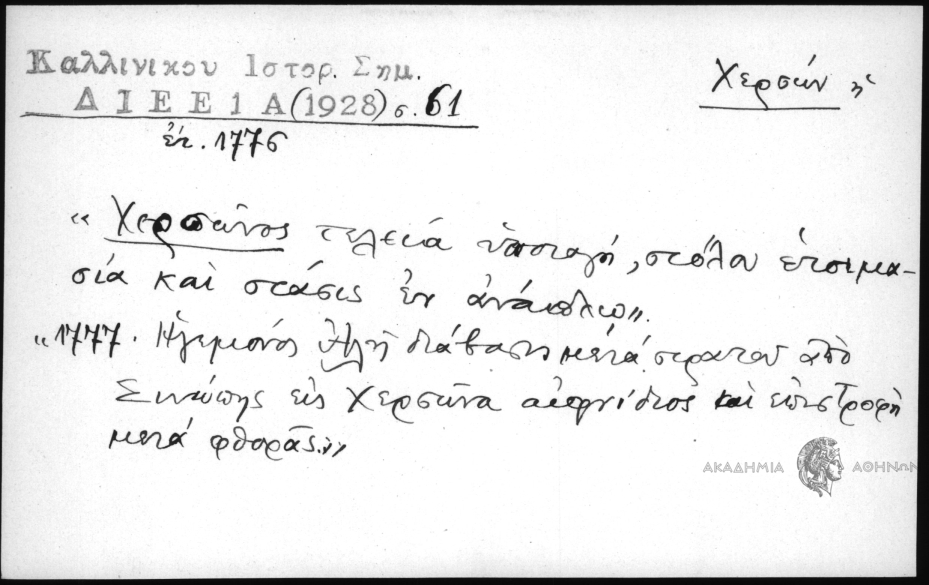 Καλλινικου Ιστορ. Σημ.
ΔΙΕΕ 1 Α (1928) σ. 61
ἔτ. 1776
Χερσών ἡ
« Χερσῶνος τελεία ὑποταγή, στόλου ἑτοιμα-
σία καὶ στάσις ἐν ἀνάπλῳ».
«1777. Ἡγεμόνος Ἀλῆ διάβασις μετά στρατοῦ ἀπὸ
Σινώπης εἰς Χερσῶνα αἰφνίδιος καὶ ἐπιστροφὴ
μετά φθορᾶς.»
ΑΚΑΔΗΜΙΑ ΑΘΗΝΩΝ